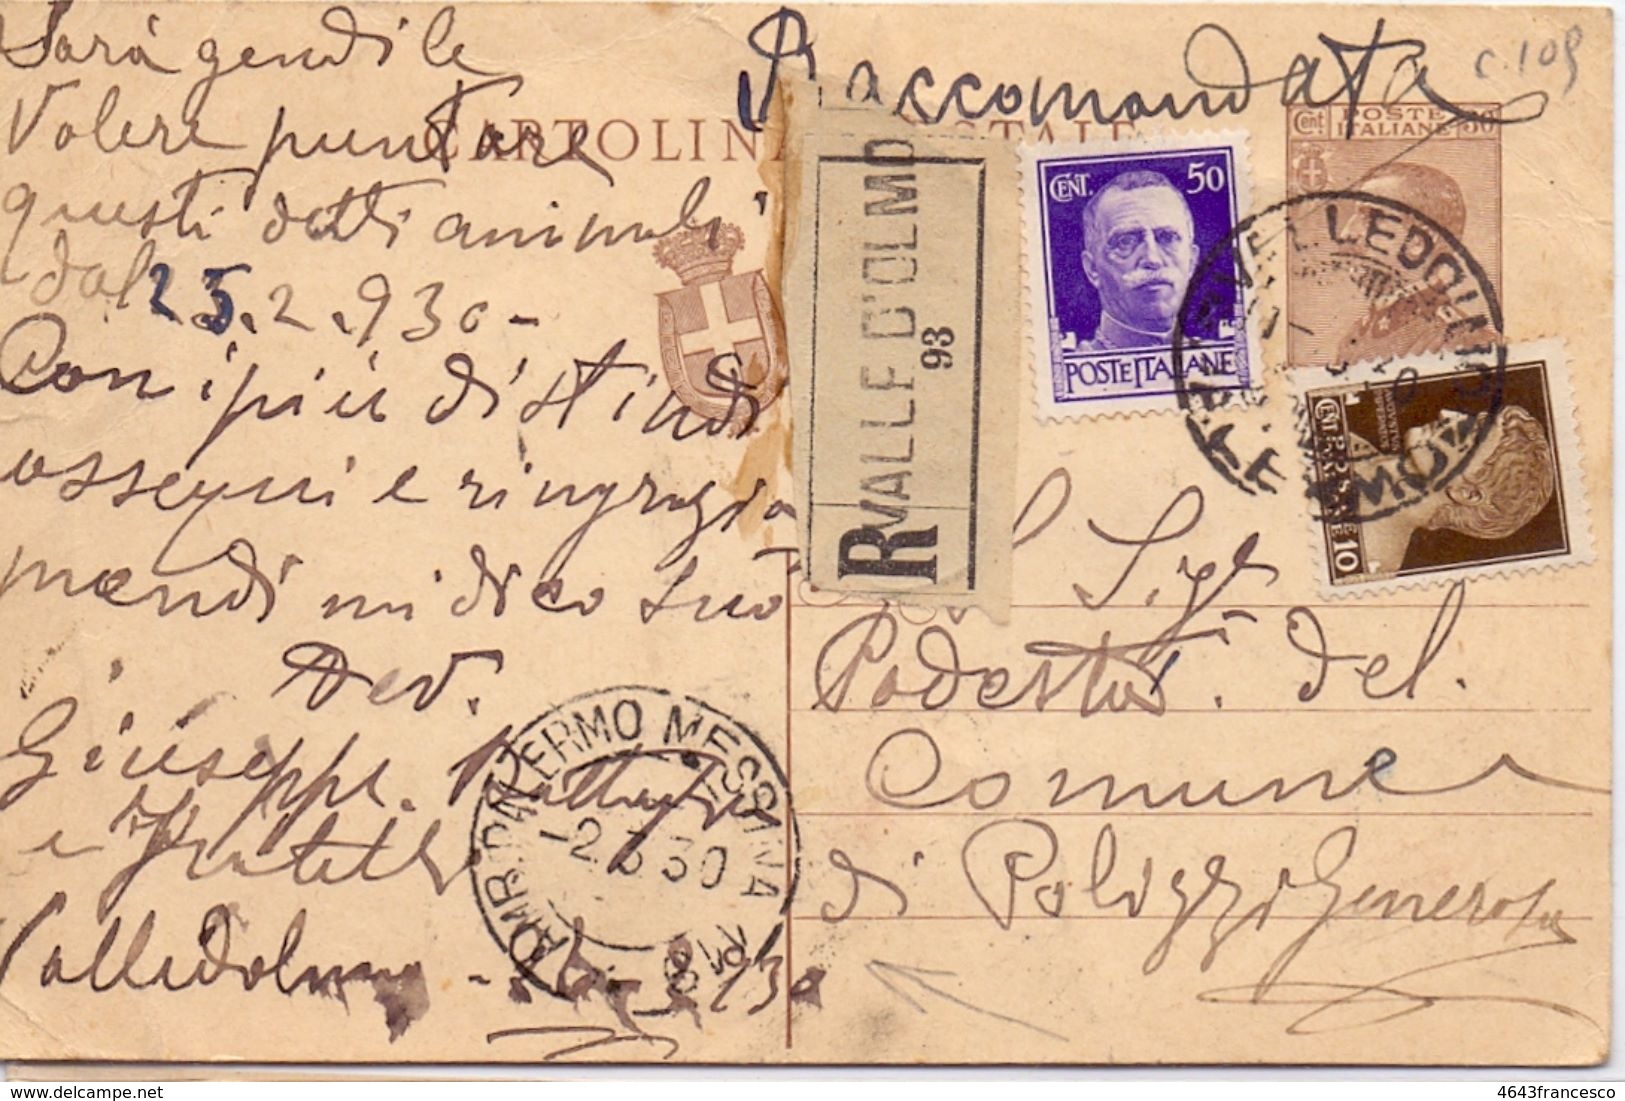 Sarà gendile
Volere puntare
questi detti animali
dal 25.2.930-
Con i più distindi
ossequi e ringrazia
mendi mi dico suo
Dev.
Giuseppe
e Fratelli
Valledolmo
Raccomandata
c. 105
CARTOLINA POSTALE
Cent. POSTE ITALIANE 30
R VALLE D'OLMO
93
CENT. 50
POSTE ITALIANE
CENT. 10
VALLEDOLMO
PALERMO
Sigr
Podestà del
Comune
di Polizzi Generosa
AMB. PALERMO MESSINA 189
-2.3.30
4643francesco